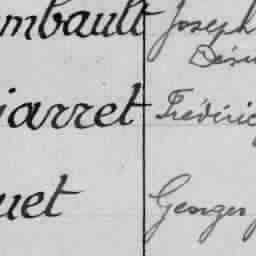 mbault Joseph
Dési
jarret Frédéric
uet Georges